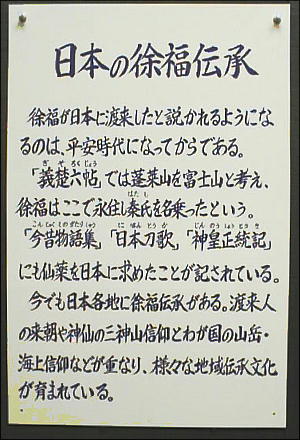 日本の徐福伝承
徐福が日本に渡来したと説かれるようにな
るのは、平安時代になってからである。
ぎそろくじょう
「義楚六帖」では蓬莱山を富士山と考え、
はたし
徐福はここで永住し秦氏を名乗ったという。
こんじゃくものがたりしゅう にほんとうか じんのうしょうとうき
「今昔物語集」「日本刀歌」「神皇正統記」
にも仙薬を日本に求めたことが記されている。
今でも日本各地に徐福伝承がある。渡来人
の来朝や神仙の三神山信仰とわが国の山岳・
海上信仰などが重なり、様々な地域伝承文化
が育まれている。